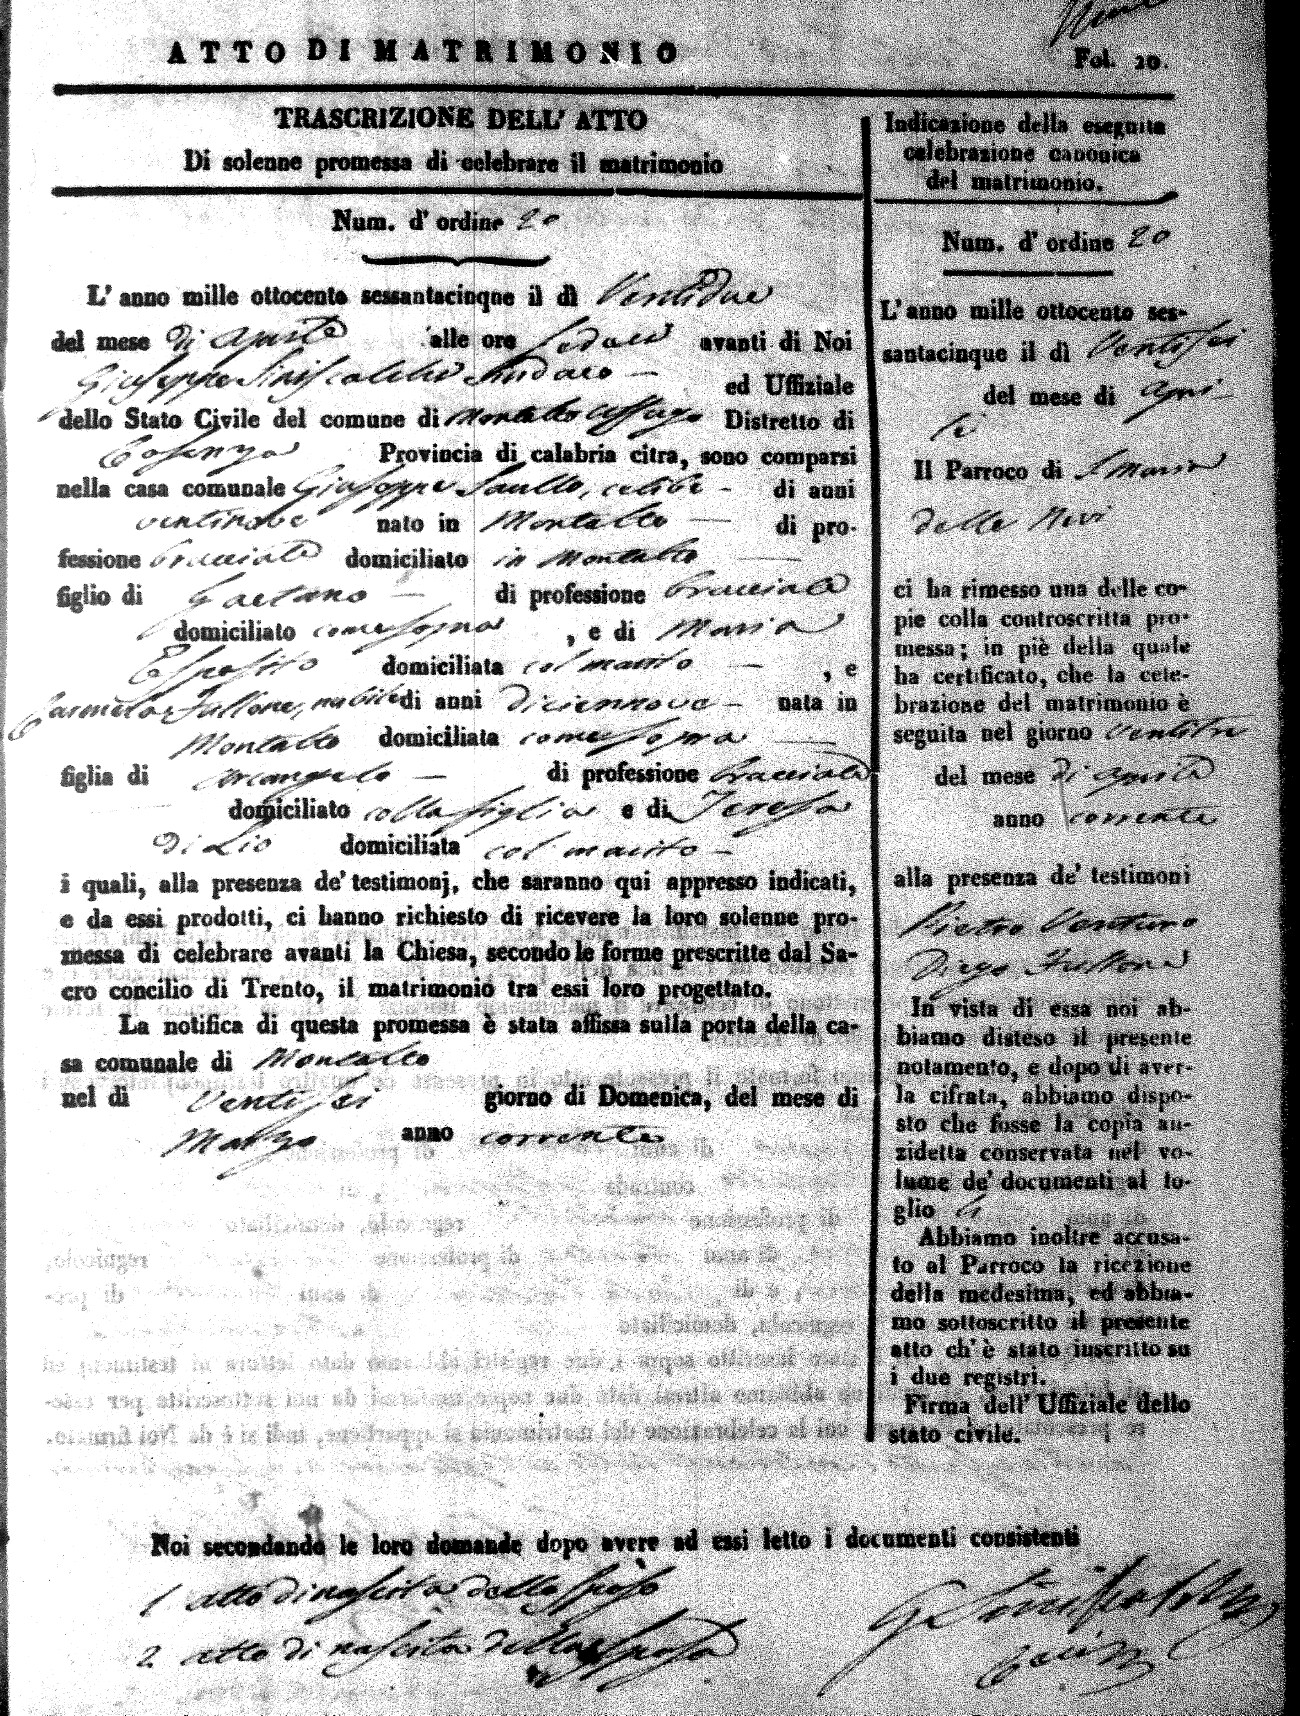 ATTO DI MATRIMONIO
Fol. 20.
TRASCRIZIONE DELL' ATTO
Di solenne promessa di celebrare il matrimonio
Num. d' ordine 20
L' anno mille ottocento sessantacinque il dì Ventidue
del mese di Aprile alle ore sedici avanti di Noi
Giuseppe Siniscalchi Sindaco ed Uffiziale
dello Stato Civile del comune di Montalto Uffugo Distretto di
Cosenza Provincia di calabria citra, sono comparsi
nella casa comunale Giuseppe Saullo, celibe di anni
ventinove nato in Montalto di pro-
fessione bracciale domiciliato in Montalto
figlio di Gaetano di professione bracciale
domiciliato come sopra , e di Maria
Esposito domiciliata col marito , e
Carmela Fullone, nubile di anni diciennove nata in
Montalto domiciliata come sopra
figlia di Arcangelo di professione bracciale
domiciliato colla figlia e di Teresa
di Lio domiciliata col marito
i quali, alla presenza de' testimonj, che saranno qui appresso indicati,
e da essi prodotti, ci hanno richiesto di ricevere la loro solenne pro-
messa di celebrare avanti la Chiesa, secondo le forme prescritte dal Sa-
cro concilio di Trento, il matrimonio tra essi loro progettato.
La notifica di questa promessa è stata affissa sulla porta della ca-
sa comunale di Montalto
nel di Ventisei giorno di Domenica, del mese di
Marzo anno corrente
Indicazione della eseguita
celebrazione canonica
del matrimonio.
Num. d' ordine 20
L' anno mille ottocento ses-
santacinque il dì Ventisei
del mese di Apri-
le
Il Parroco di S. Maria
delle Nevi
ci ha rimesso una delle co-
pie colla controscritta pro-
messa; in piè della quale
ha certificato, che la cele-
brazione del matrimonio è
seguita nel giorno Ventitre
del mese di Aprile
anno corrente
alla presenza de' testimoni
Pietro Venturo
Diego Fullone
In vista di essa noi ab-
biamo disteso il presente
notamento, e dopo di aver-
la cifrata, abbiamo dispo-
sto che fosse la copia an-
zidetta conservata nel vo-
lume de' documenti al fo-
glio
Abbiamo inoltre accusa-
to al Parroco la ricezione
della medesima, ed abbia-
mo sottoscritto il presente
atto ch' è stato inscritto su
i due registri.
Firma dell' Uffiziale dello
stato civile.
Noi secondando le loro domande dopo avere ad essi letto i documenti consistenti
1. atto di nascita dello sposo
2. atto di nascita della sposa
G. Siniscalchi